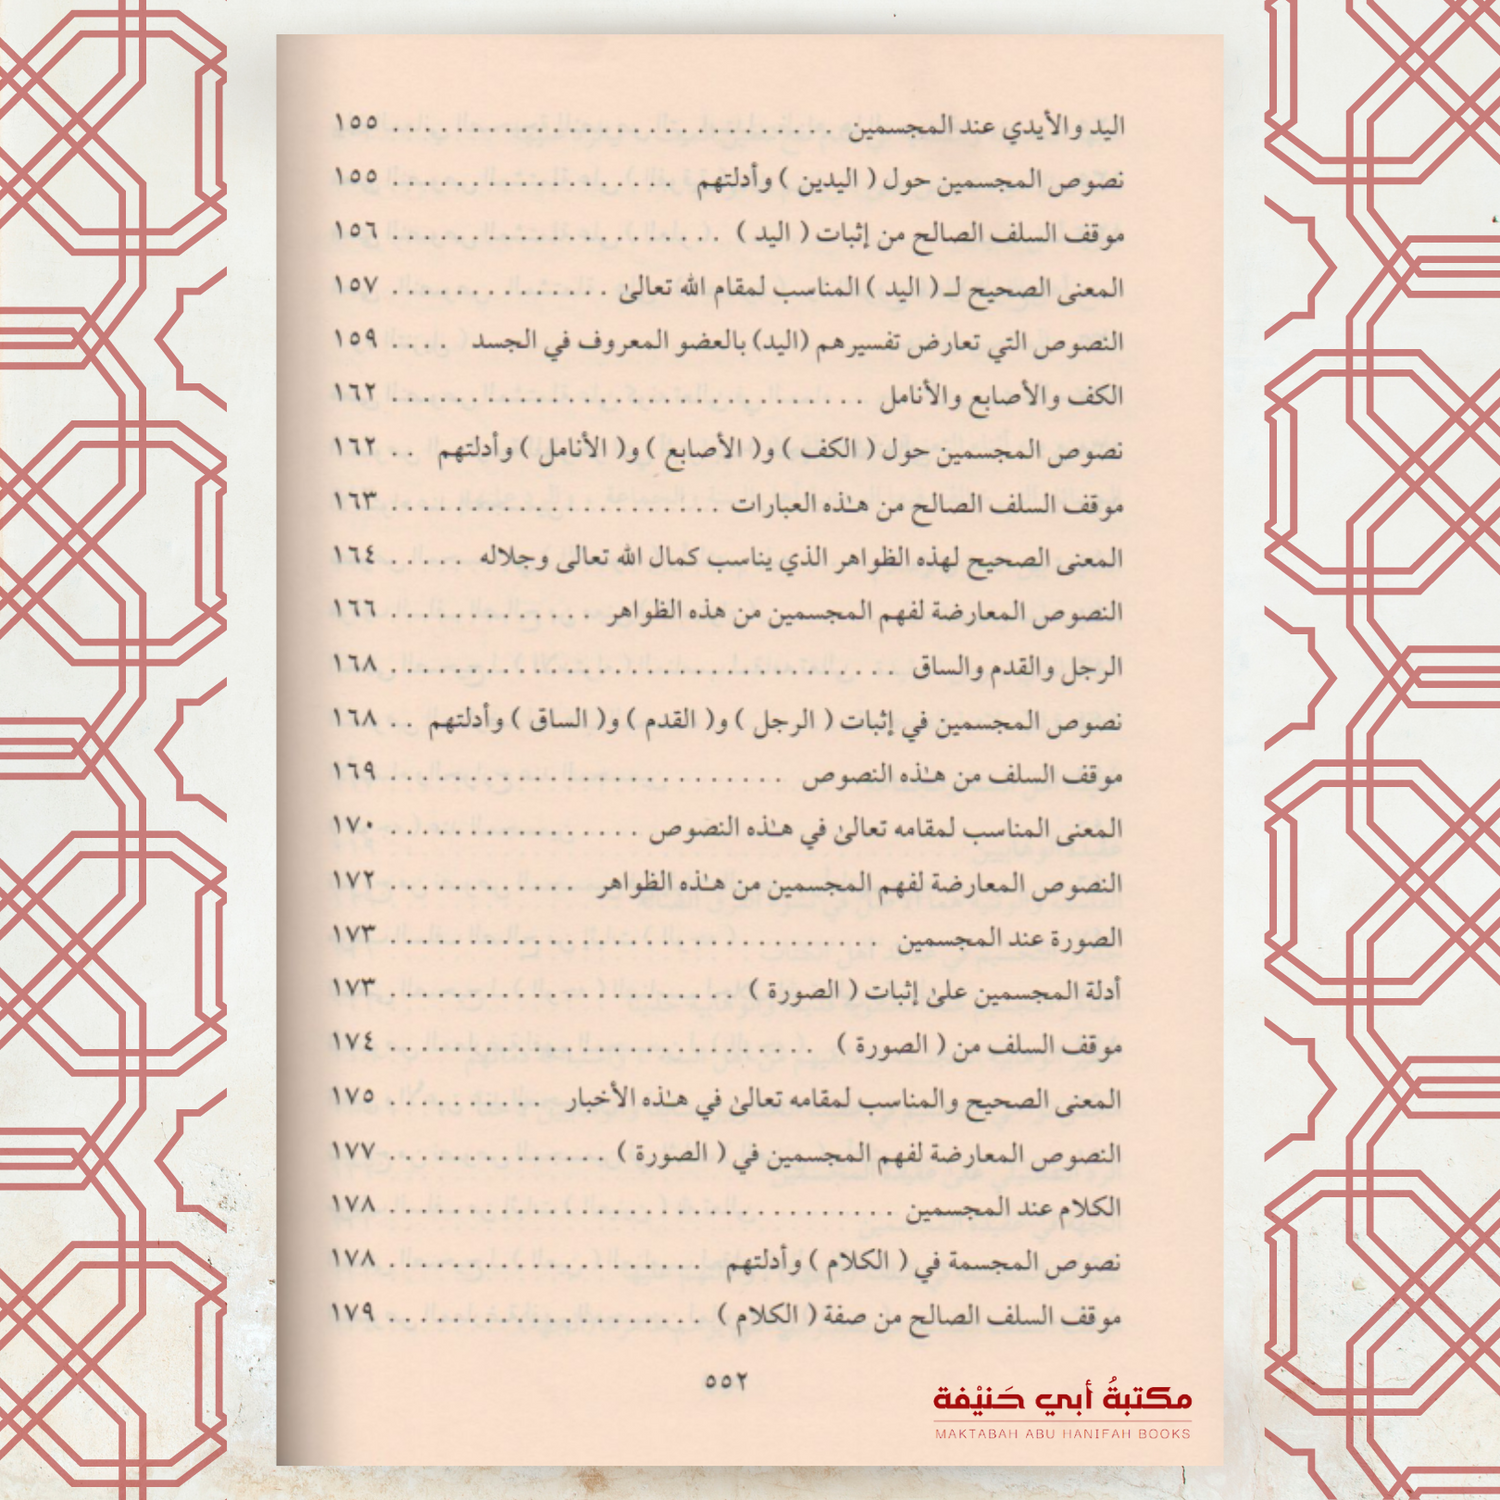 اليد والأيدي عند المجسمين ............................ ١٥٥
نصوص المجسمين حول ( اليدين ) وأدلتهم .................. ١٥٥
موقف السلف الصالح من إثبات ( اليد ) ..................... ١٥٦
المعنى الصحيح لـ ( اليد ) المناسب لمقام الله تعالىٰ .............. ١٥٧
النصوص التي تعارض تفسيرهم (اليد) بالعضو المعروف في الجسد .... ١٥٩
الكف والأصابع والأنامل .............................. ١٦٢
نصوص المجسمين حول ( الكف ) و( الأصابع ) و( الأنامل ) وأدلتهم .. ١٦٢
موقف السلف الصالح من هـٰذه العبارات ..................... ١٦٣
المعنى الصحيح لهذه الظواهر الذي يناسب كمال الله تعالى وجلاله ..... ١٦٤
النصوص المعارضة لفهم المجسمين من هذه الظواهر ............. ١٦٦
الرجل والقدم والساق ................................ ١٦٨
نصوص المجسمين في إثبات ( الرجل ) و( القدم ) و( الساق ) وأدلتهم .. ١٦٨
موقف السلف من هـٰذه النصوص ......................... ١٦٩
المعنى المناسب لمقامه تعالىٰ في هـٰذه النصوص ................ ١٧٠
النصوص المعارضة لفهم المجسمين من هـٰذه الظواهر ............ ١٧٢
الصورة عند المجسمين ............................... ١٧٣
أدلة المجسمين علىٰ إثبات ( الصورة ) ...................... ١٧٣
موقف السلف من ( الصورة ) ........................... ١٧٤
المعنى الصحيح والمناسب لمقامه تعالىٰ في هـٰذه الأخبار .......... ١٧٥
النصوص المعارضة لفهم المجسمين في ( الصورة ) .............. ١٧٧
الكلام عند المجسمين ................................ ١٧٨
نصوص المجسمة في ( الكلام ) وأدلتهم .................... ١٧٨
موقف السلف الصالح من صفة ( الكلام ) .................... ١٧٩
٥٥٢
مكتبةُ أبي حَنيْفة
MAKTABAH ABU HANIFAH BOOKS